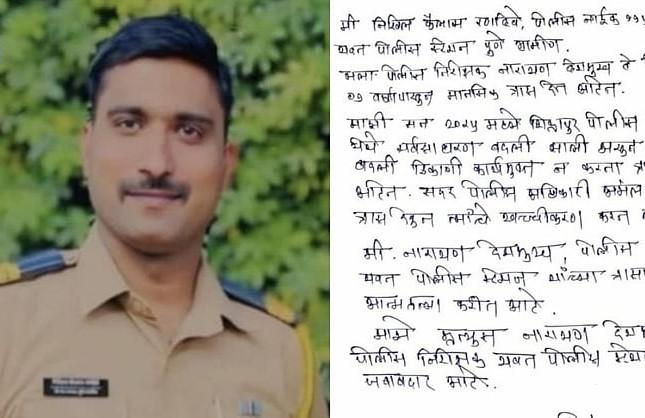 मी निखिल कैलास रणदिवे, पोलीस नाईक
यवत पोलीस स्टेशन पुणे ग्रामीण.
मला पोलीस निरीक्षक नारायण देशमुख ते
०१ वर्षापासून मानसिक त्रास देत आहेत.
माझी सन २०२५ मध्ये शिक्रापूर पोलीस
येथे सर्वसाधारण बदली झाली असून
बदली ठिकाणी कार्यमुक्त न करता
आहेत. सदर पोलीस अधिकारी
त्रास देऊन त्यांचे खच्चीकरण करत
मी. नारायण देशमुख, पोलीस
यवत पोलीस स्टेशन यांच्या
आत्महत्या करीत आहे.
माझे मृत्यूस नारायण
पोलीस निरीक्षक यवत पोलीस
जबाबदार आहे.